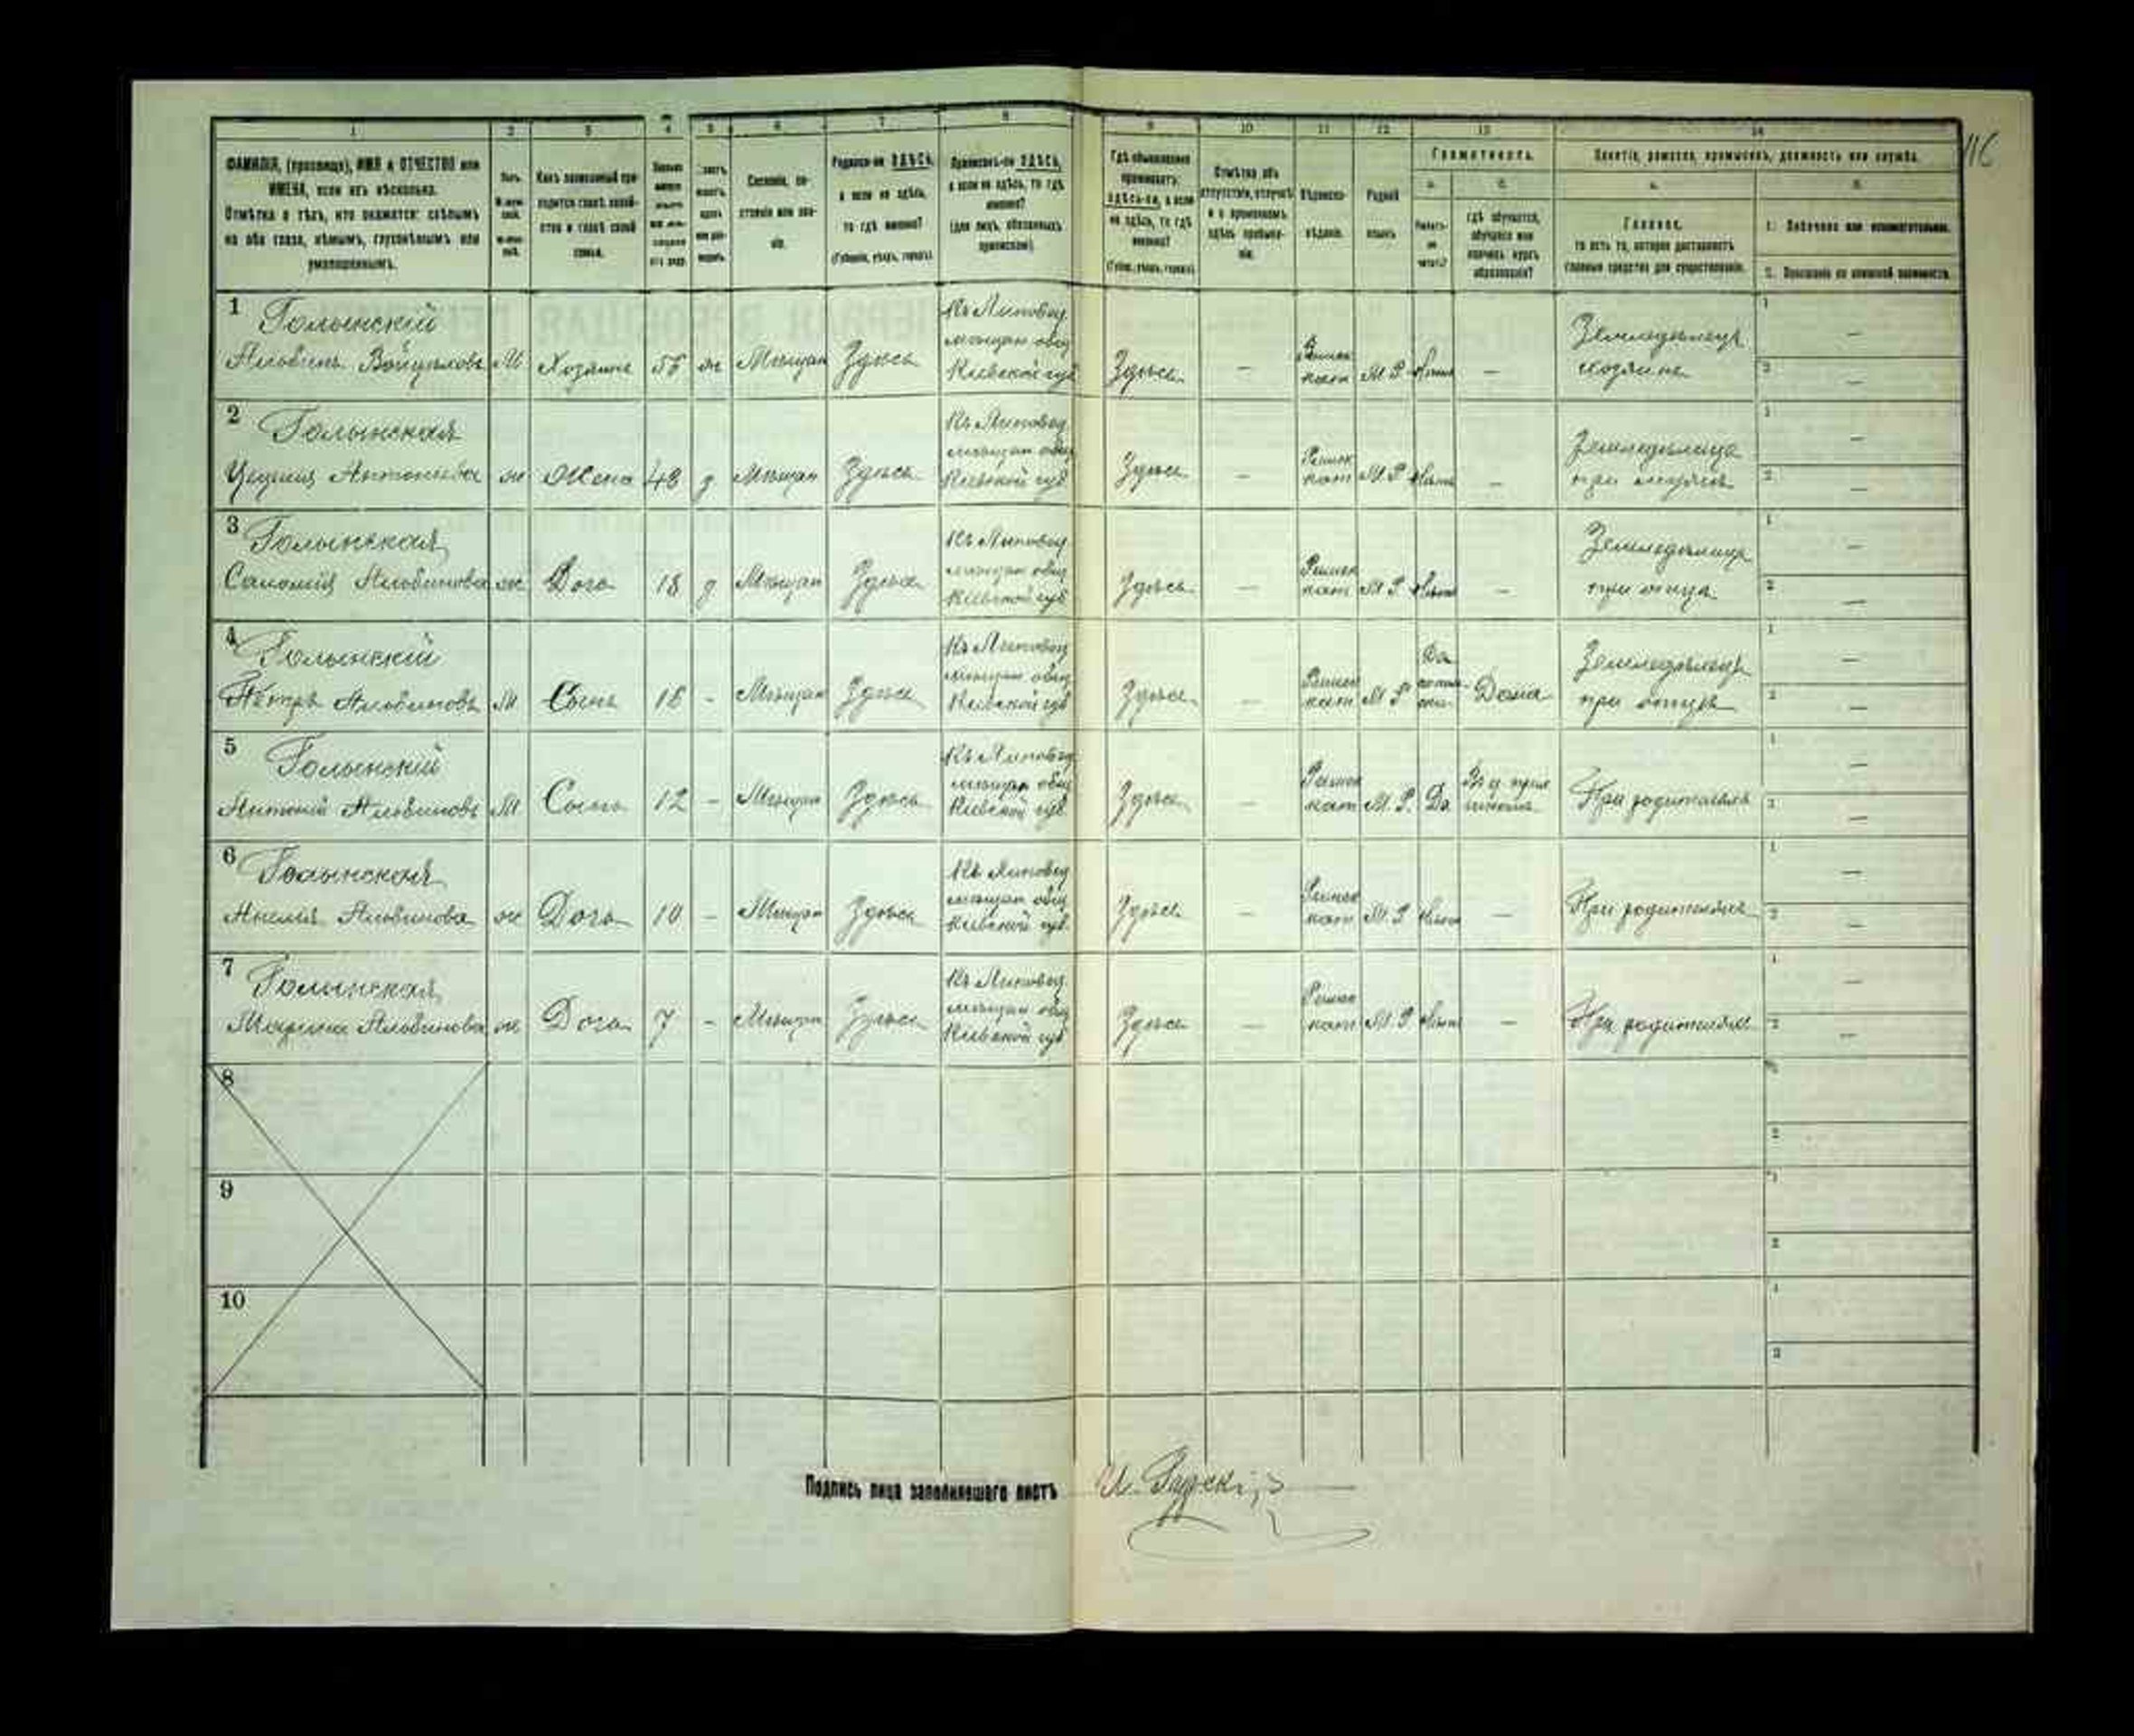 1 2 3 4 5 6 7 8 9 10 11 12 13 14
116
ФАМИЛІЯ, (прозвище), ИМЯ и ОТЧЕСТВО или
ИМЕНА, если ихъ нѣсколько.
Отмѣтка о тѣхъ, кто окажется: слѣпымъ
на оба глаза, нѣмымъ, глухонѣмымъ или
умалишеннымъ.
Полъ.
Какъ записанный при-
ходится главѣ хозяй-
ства и главѣ своей
семьи.
Сословіе, со-
стояніе или зва-
ніе.
Родился-ли ЗДѢСЬ,
а если не здѣсь,
то гдѣ именно?
(Губернія, уѣздъ, городъ)
Приписанъ-ли ЗДѢСЬ,
а если не здѣсь, то гдѣ
именно?
(для лицъ, обязанныхъ
припискою)
Гдѣ обыкновенно
проживаетъ:
ЗДѢСЬ-ли, а если
не здѣсь, то гдѣ
именно?
(Губер., уѣздъ, городъ)
Отмѣтка объ
отсутствіи, отлучкѣ
и о временномъ
здѣсь пребыва-
ніи.
Вѣроиспо-
вѣданіе.
Родной
языкъ.
Грамотность.
а. б.
Умѣетъ-
ли
читать?
гдѣ обучается,
обучался или
кончилъ курсъ
образованія?
Занятіе, ремесло, промыселъ, должность или служба.
а. б.
Главное,
то есть то, которое доставляетъ
главныя средства для существованія.
1. Побочное или вспомогательное.
2. Положеніе по воинской повинности.
1 Голынскій
Альбинъ Войцѣховъ М Хозяинъ ж Мѣщан Здѣсь
Къ Липовец
мѣщан общ
Кіевской губ
Здѣсь — Римск
кат М П Нѣтъ —
Земледѣлецъ
хозяинъ
1 —
2 —
2 Голынская
Антоніева ж Жена 48 з Мѣщан Здѣсь
Къ Липовец
мѣщан общ
Кіевской губ
Здѣсь — Римск
кат М П Нѣтъ —
Земледѣлица
при мужѣ
1 —
2 —
3 Голынская
Саломія Альбинова ж Дочь 18 з Мѣщан Здѣсь
Къ Липовец
мѣщан общ
Кіевской губ
Здѣсь — Римск
кат М П Нѣтъ —
при отцѣ
1 —
2 —
4 Голынскій
Петръ Альбиновъ М Сынъ 16 - Мѣщан Здѣсь
Къ Липовец
мѣщан общ
Кіевской губ
Здѣсь — Римск
кат М П Да Дома
Земледѣлецъ
при отцѣ
1 —
2 —
5 Голынскій
Антоній Альбиновъ М Сынъ 12 - Мѣщан Здѣсь
Къ Липовец
мѣщан общ
Кіевской губ
Здѣсь — Римск
кат М П. Да
При родителяхъ
1 —
2 —
6 Голынская
Анелія Альбинова ж Дочь 10 - Мѣщан Здѣсь
Къ Липовец
мѣщан общ
Кіевской губ
Здѣсь — Римск
кат М П Нѣтъ —
При родителяхъ
1 —
2 —
7 Голынская
Марина Альбинова ж Дочь 7 - Мѣщан Здѣсь
Къ Липовец
мѣщан общ
Кіевской губ
Здѣсь — Римск
кат М П Нѣтъ —
При родителяхъ
1 —
2 —
8
1
2
9
1
2
10
1
2
Подпись лица заполнявшаго листъ